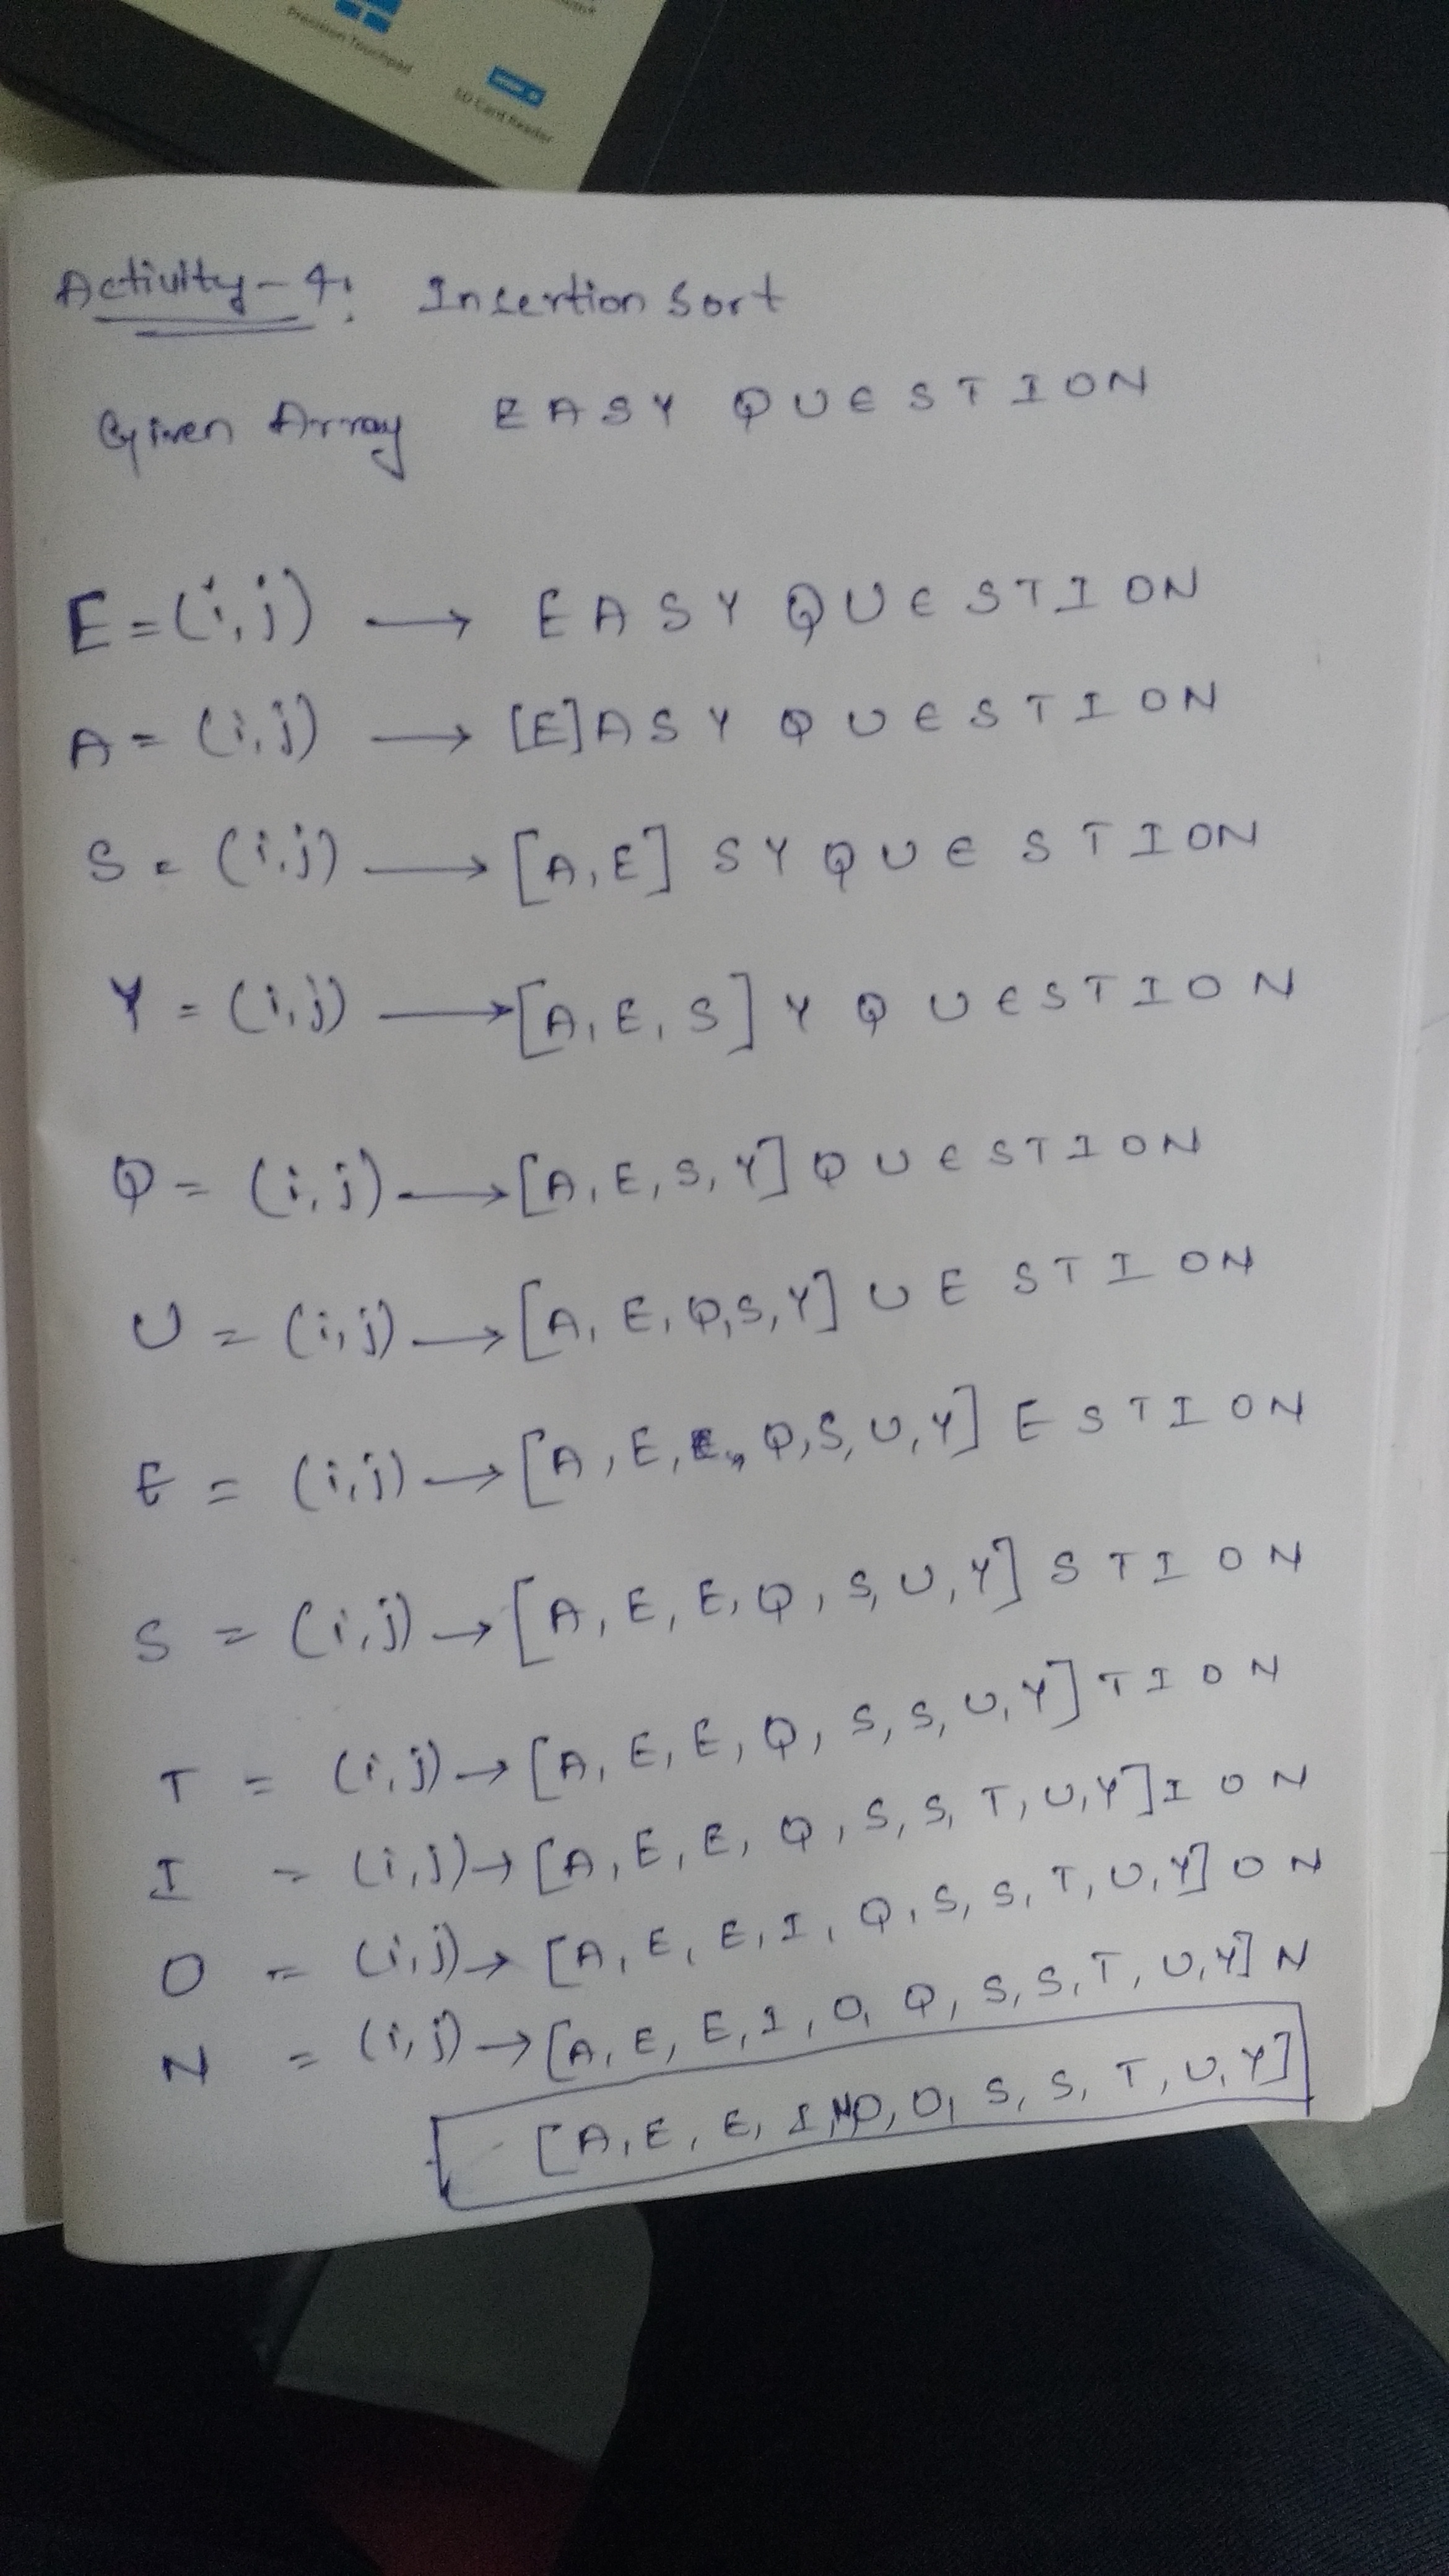 Precision Touchpad
SD Card Reader
Activity-4: Insertion Sort
Given Array E A S Y Q U E S T I O N
E = (i,j) → E A S Y Q U E S T I O N
A = (i,j) → [E] A S Y Q U E S T I O N
S = (i,j) → [A, E] S Y Q U E S T I O N
Y = (i,j) → [A, E, S] Y Q U E S T I O N
Q = (i,j) → [A, E, S, Y] Q U E S T I O N
U = (i,j) → [A, E, Q, S, Y] U E S T I O N
E = (i,j) → [A, E, E, Q, S, U, Y] E S T I O N
S = (i,j) → [A, E, E, Q, S, U, Y] S T I O N
T = (i,j) → [A, E, E, Q, S, S, U, Y] T I O N
I = (i,j) → [A, E, E, Q, S, S, T, U, Y] I O N
O = (i,j) → [A, E, E, I, Q, S, S, T, U, Y] O N
N = (i,j) → [A, E, E, I, O, Q, S, S, T, U, Y] N
[A, E, E, I, N, O, S, S, T, U, Y]